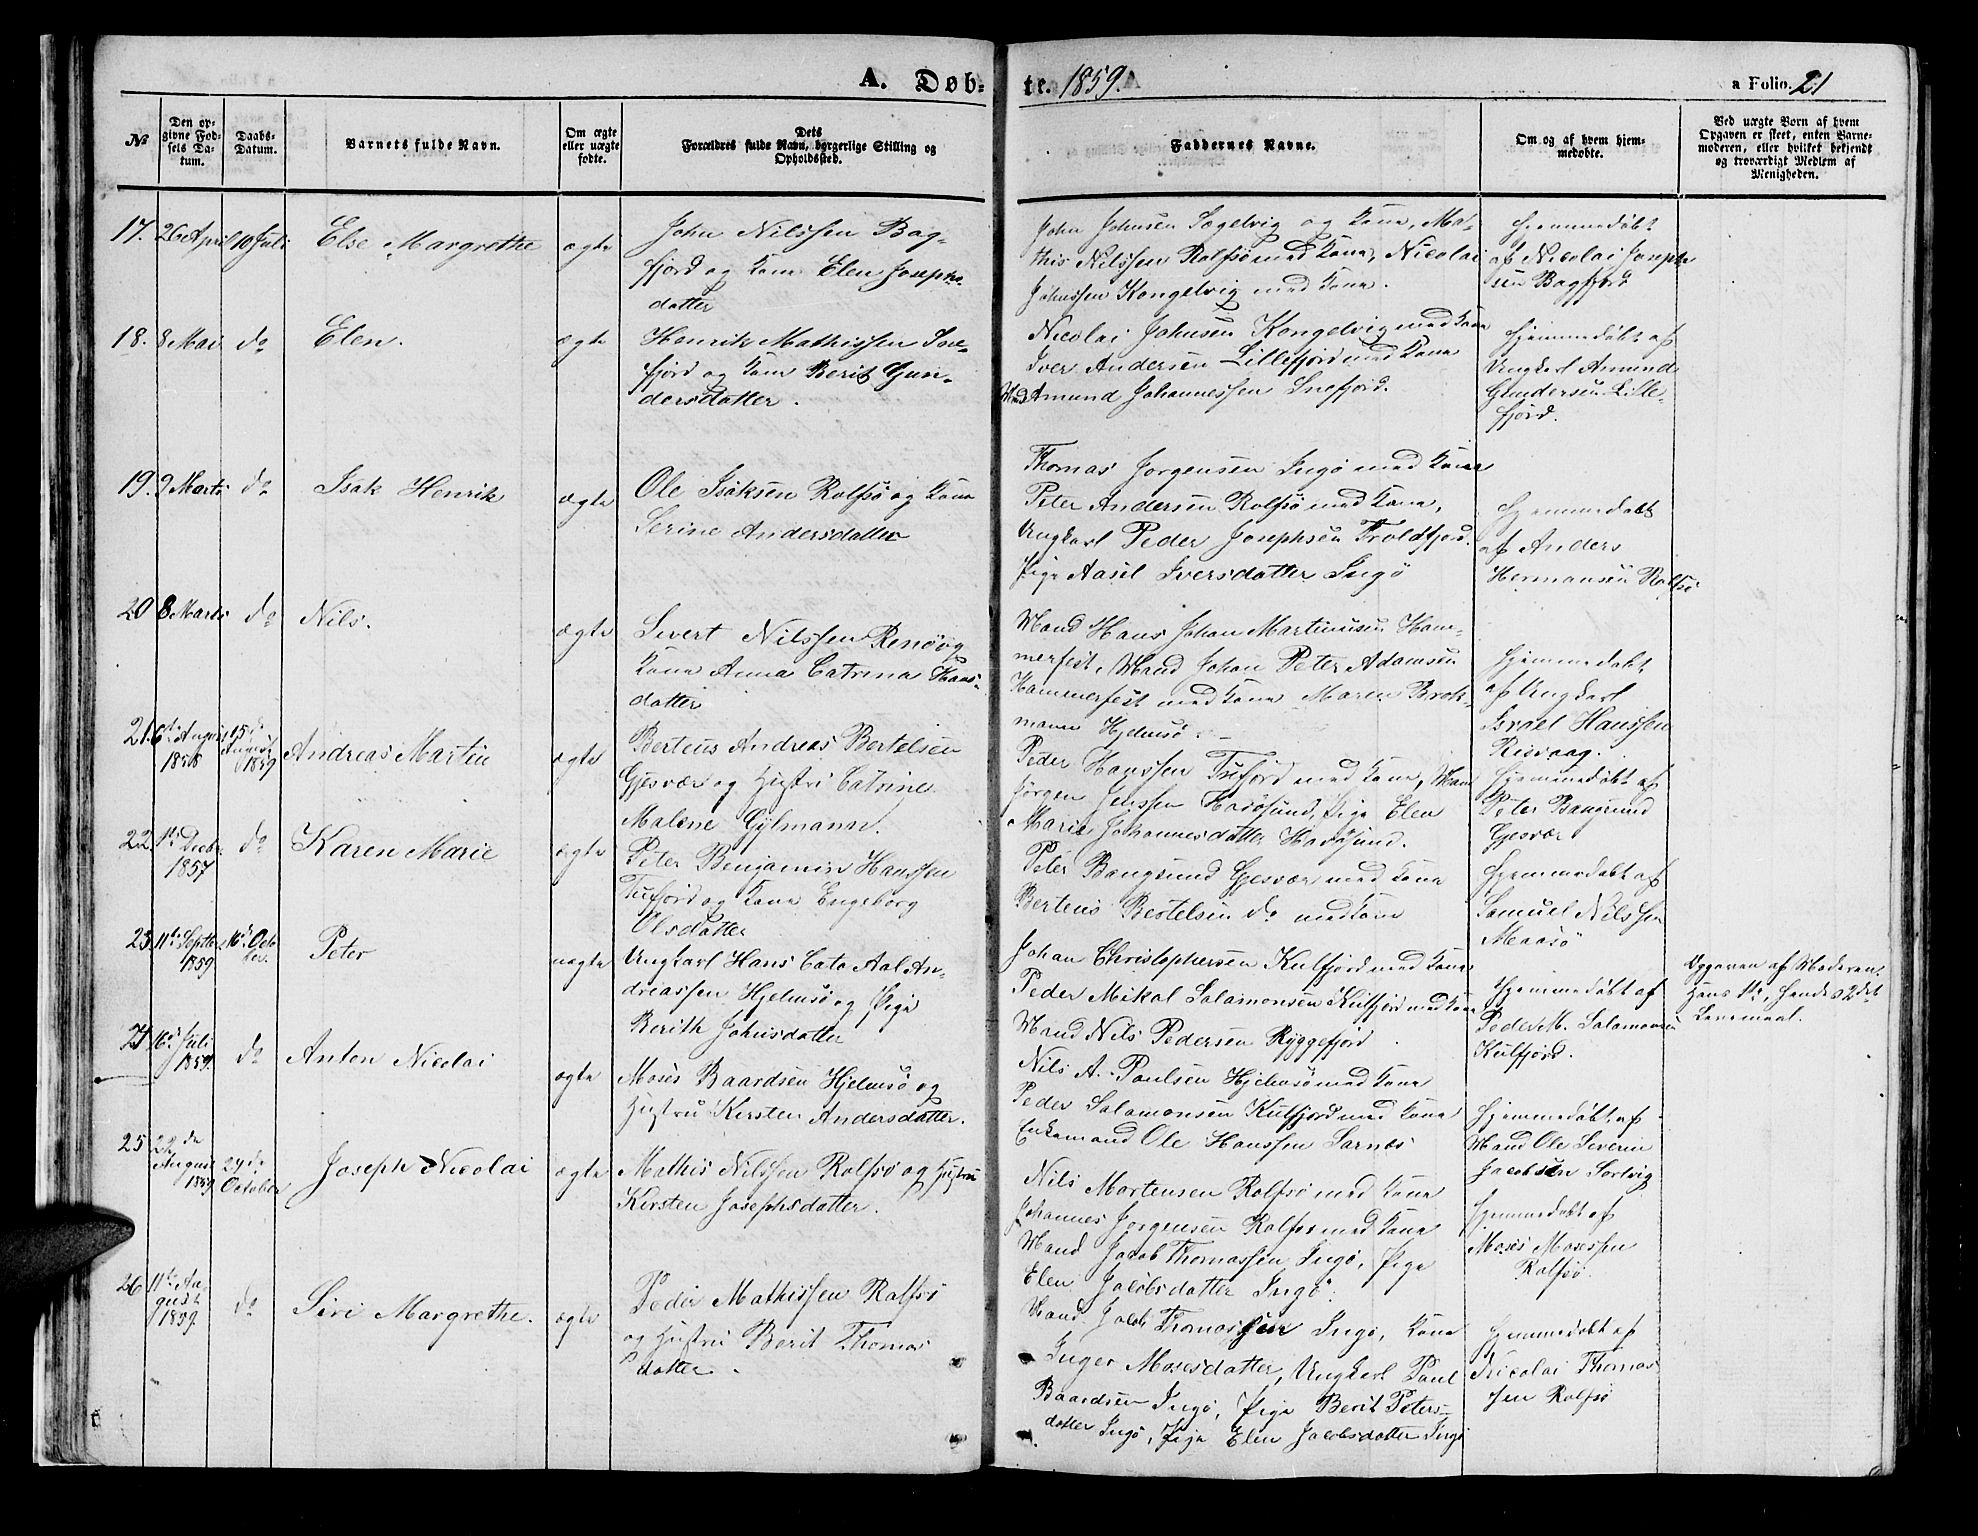 A. Døb-
te. 1859.
a Folio. 21
№
Den op-
givne Fød-
sels Da-
tum.
Daabs-
Datum.
Barnets fulde Navn.
Om ægte
eller uægte
fødte.
Dets
Forældres fulde Navn, borgerlige Stilling og
Opholdssted.
Faddernes Navne.
Om og af hvem hjem-
medøbte.
Ved uægte Børn af hvem
Opgaven er skeet, enten Barne-
moderen, eller hvilket bekjendt
og troværdigt Medlem af
Menigheden.
17. 26 April 10 Juli Else Margrethe ægte
John Nilssen Bag-
fjord og Kone Elen Josephs-
datter
John Johnsen Sægelvig og Kone, Ma-
this Nilssen Rolfsø med Kone, Nicolai
Johnssen Kongelvig med Kone.
Hjemmedøbt
af Nicolai Joseph-
sen Bagfjord
18. 8 Mai do Elen. ægte
Henrik Mathissen Sne-
fjord og Kone Berit Gun-
dersdatter.
Nicolai Johnsen Kongelvig med Kone
Iver Andersen Lillefjord med Kone
Mand Amund Johannessen Snefjord.
Hjemmedøbt af
Ungkarl Amund
Gundersen Lille-
fjord.
19. 9 Marts do Isak Henrik ægte
Ole Isaksen Rolfsø og Kone
Serine Andersdatter
Thomas Jørgensen Ingø med Kone
Peter Andersen Rolfsø med Kone,
Ungkarl Peder Josephsen Troldfjord.
Pige Aasel Iversdatter Ingø
Hjemmedøbt
af Anders
Hermansen Rolfsø
20 8 Marts do Nils. ægte
Sivert Nilssen Renø og
Kone Anna Catrina Hans-
datter
Mand Hans Johan Martinusen Ham-
merfest, Mand Johan Peter Adamsen
Hammerfest med Kone Maren Brok-
mann Hjelmsø.
Hjemmedøbt
af Ungkarl
Israel Hanssen
Risvaag.
21. 6te August 1858 15de August 1859 Andreas Martin ægte
Berteus Andreas Bertelsen
Gjesvær og Hustru Catrine
Malene Gylmann.
Peder Hanssen Tufjord med Kone, Mand
Jørgen Jenssen Havøsund, Pige Elen
Marie Johannesdatter Havøsund.
Hjemmedøbt af
Peter Bangsund
Gjesvær
22 1ste Decbr 1857 do Karen Marie ægte
Peter Benjamin Hanssen
Tufjord og Kone Engeborg
Olsdatter
Peter Bangsund Gjesvær med Kone
Berteus Bertelsen do med Kone
Hjemmedøbt af
Samuel Nilssen
Maasø
23 11te Septbr 1859 16de October Peter uægte
Ungkarl Hans Cato Aal An-
dreassen Hjelmsø og Pige
Berith Johnsdatter
Johan Christophersen Kulfjord med Kone
Peder Mikal Salamonsen Kulfjord med Kone
Mand Nils Pedersen Ryggefjord.
Hjemmedøbt af
Peder M. Salamonsen
Kulfjord.
Opgaven af Moderen.
Hans 1ste, hendes 2det
Leiermaal.
24 16de Juli 1859 do Anton Nicolai ægte
Moses Baardsen Hjelmsø og
Hustru Kirsten Andersdatter.
Nils A. Paulsen Hjelmsø med Kone
Peder Salamonsen Kulfjord med Kone
Enkemand Ole Hanssen Sarnæs
Hjemmedøbt af
Mand Ole Severin
Jacobsen Sortvig
25 22de August 1859 24de October Joseph Nicolai ægte
Mathis Nilssen Rolfsø og Hustru
Kirsten Josephsdatter.
Nils Mortensen Rolfsø med Kone
Johannes Jørgensen Rolfsø med Kone
Mand Jacob Thomassen Ingø, Pige
Elen Jacobsdatter Ingø.
Hjemmedøbt af
Moses Mosessen
Rolfsø.
26 11te August 1859 do Siri Margrethe. ægte
Peder Mathissen Rolfsø
og Hustru Berit Thomas
datter.
Mand Jacob Thomassen Ingø, Kone
Inger Mosesdatter, Ungkarl Paul
Baardsen Ingø, Pige Berit Peters-
datter Ingø, Pige Elen Jacobsdatter Ingø
Hjemmedøbt af
Nicolai Thomas
sen Rolfsø